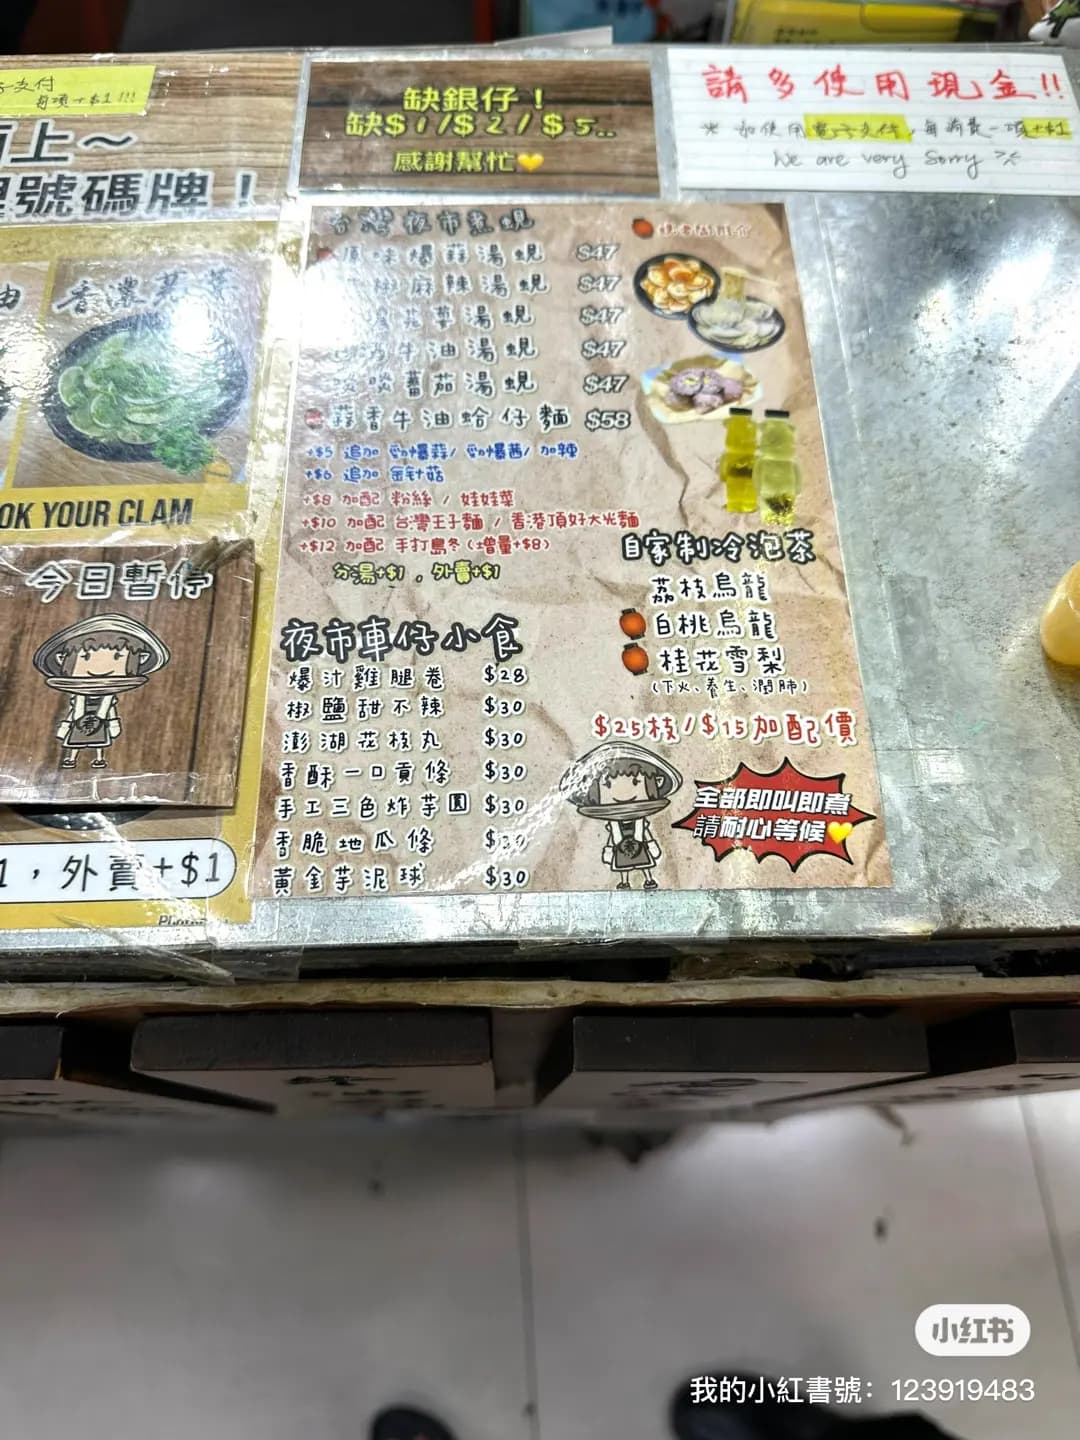 子支付
每項+$1!!!
面上～
號碼牌！
缺銀仔！
缺$1/$2/$5..
感謝幫忙
請多使用現金!!
※ 如使用電子支付，每消費一項+$1
We are very Sorry
油
香濃
OK YOUR CLAM
今日暫停
煮
1，外賣+$1
台灣夜市煮蜆
原味爆蒜湯蜆 $47
椒麻辣湯蜆 $47
湯蜆 $47
牛油湯蜆 $47
蕃茄湯蜆 $47
蒜香牛油蛤仔麵 $58
+$5 追加 勁爆蒜/勁爆茜/加辣
+$6 追加 金针菇
+$8 加配 粉絲 / 娃娃菜
+$10 加配 台灣王子麵 / 香港頂好大光麵
+$12 加配 手打烏冬(增量+$8)
分湯+$1，外賣+$1
自家制冷泡茶
荔枝烏龍
白桃烏龍
桂花雪梨
(下火、養生、潤肺)
$25枝/$15加配價
夜市車仔小食
爆汁雞腿卷 $28
椒鹽甜不辣 $30
澎湖花枝丸 $30
香酥一口貢條 $30
手工三色炸芋圓 $30
香脆地瓜條 $30
黃金芋泥球 $30
煮
全部即叫即煮
請耐心等候
小红书
我的小紅書號：123919483